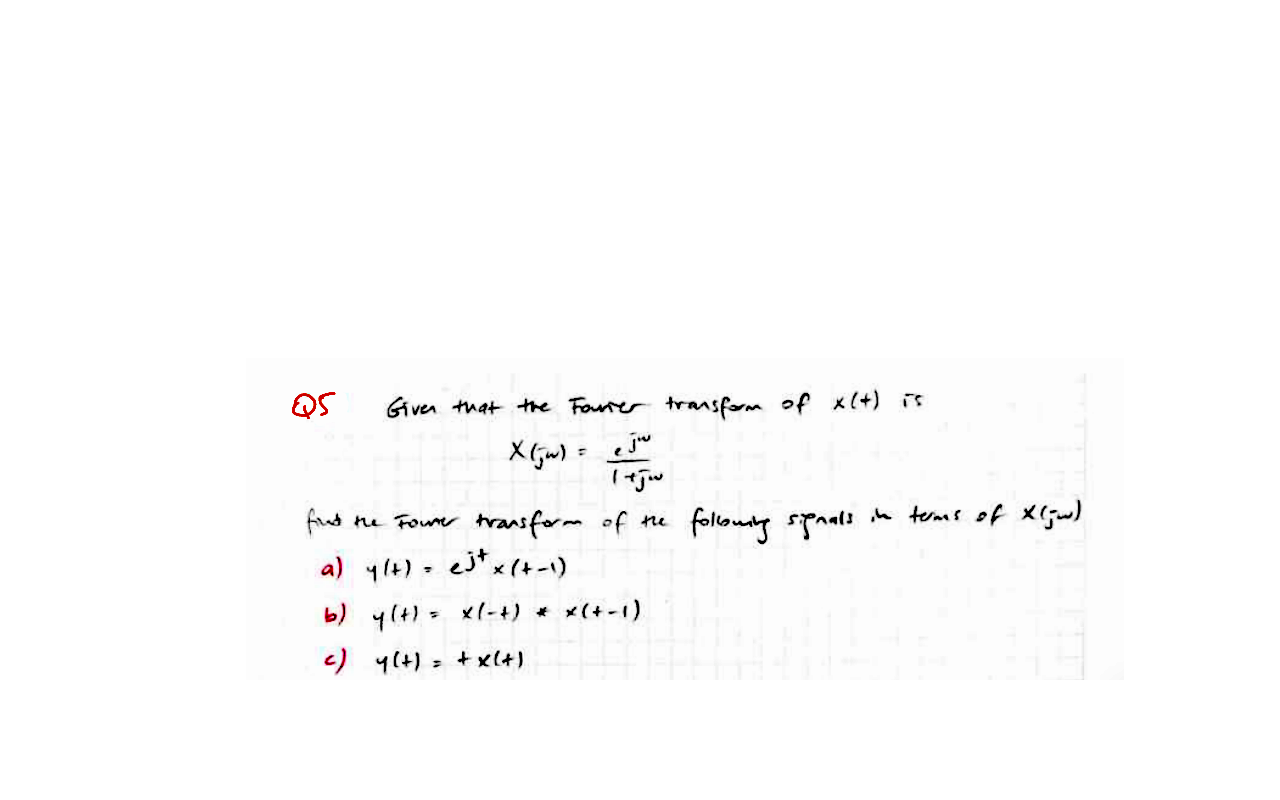 Q5 Given that the Fourier transform of x(t) is
X(jw) = e^jw / 1+jw
find the Fourier transform of the following signals in terms of X(jw)
a) y(t) = e^jt x(t-1)
b) y(t) = x(-t) * x(t-1)
c) y(t) = t x(t)